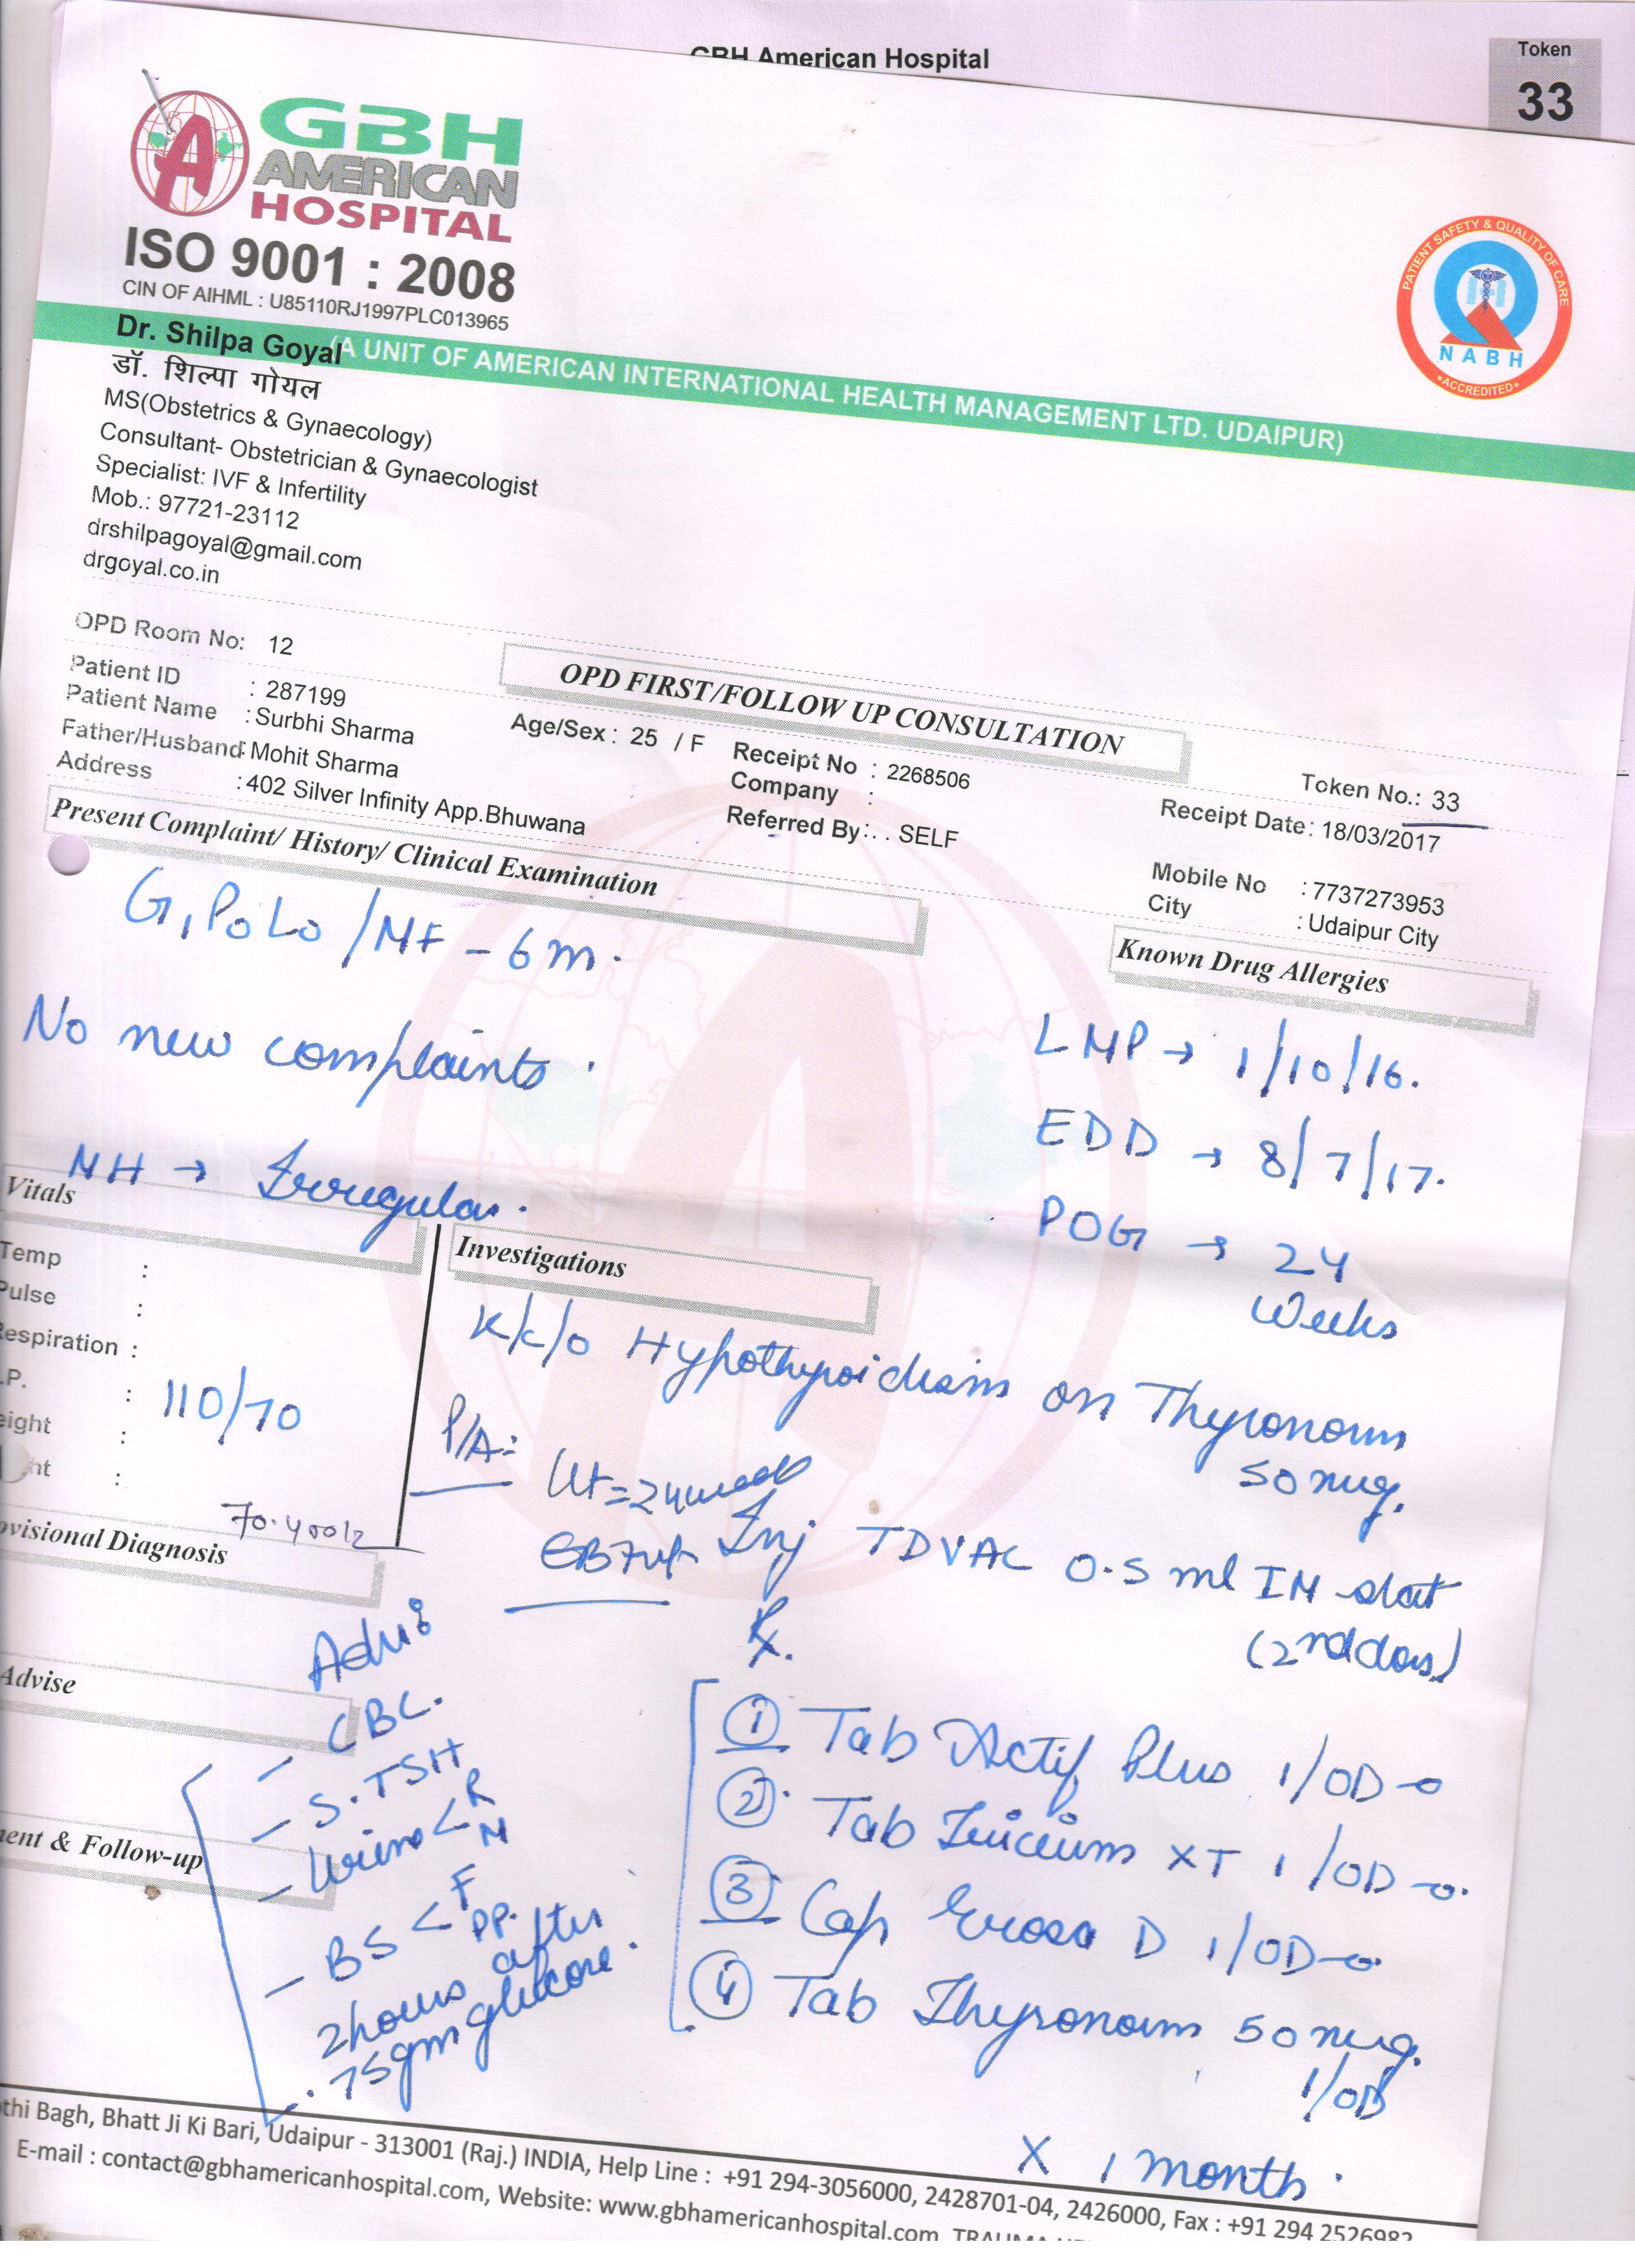 GBH American Hospital
Token
33
GBH
AMERICAN
HOSPITAL
ISO 9001 : 2008
CIN OF AIHML : U85110RJ1997PLC013965
PATIENT SAFETY & QUALITY OF CARE
NABH
ACCREDITED
(A UNIT OF AMERICAN INTERNATIONAL HEALTH MANAGEMENT LTD. UDAIPUR)
Dr. Shilpa Goyal
डॉ. शिल्पा गोयल
MS(Obstetrics & Gynaecology)
Consultant- Obstetrician & Gynaecologist
Specialist: IVF & Infertility
Mob.: 97721-23112
drshilpagoyal@gmail.com
drgoyal.co.in
OPD Room No: 12
OPD FIRST/FOLLOW UP CONSULTATION
Token No.: 33
Patient ID : 287199
Patient Name : Surbhi Sharma
Age/Sex : 25 / F
Receipt No : 2268506
Receipt Date: 18/03/2017
Father/Husband : Mohit Sharma
Company :
Mobile No : 7737273953
Address : 402 Silver Infinity App.Bhuwana
Referred By : . . SELF
City : Udaipur City
Present Complaint/ History/ Clinical Examination
Known Drug Allergies
G1P0L0/MF - 6m.
No new complaints.
LMP → 1/10/16.
EDD → 8/7/17.
POG → 24
Weeks
MH → Irregular.
Vitals
Temp :
Pulse :
Respiration :
.P. : 110/70
eight :
ht :
Investigations
K/c/o Hypothyroidism on Thyronorm
50 mcg.
P/A:
Ut = 24 weeks
Inj TDVAC 0.5 ml IM stat
(2nd dose)
ovisional Diagnosis
Advise
ment & Follow-up
Adv:
- CBC.
- S.TSH
- Urine < R
M
- BS < F
PP.
2hours after
75gm glucose.
Rx.
① Tab Actif Plus 1/OD
② Tab XT 1/OD
③ Cap D 1/OD
④ Tab Thyronorm 50 mcg.
1/OD
X 1 month.
thi Bagh, Bhatt Ji Ki Bari, Udaipur - 313001 (Raj.) INDIA, Help Line : +91 294-3056000, 2428701-04, 2426000, Fax : +91 294 2526982
E-mail : contact@gbhamericanhospital.com, Website: www.gbhamericanhospital.com